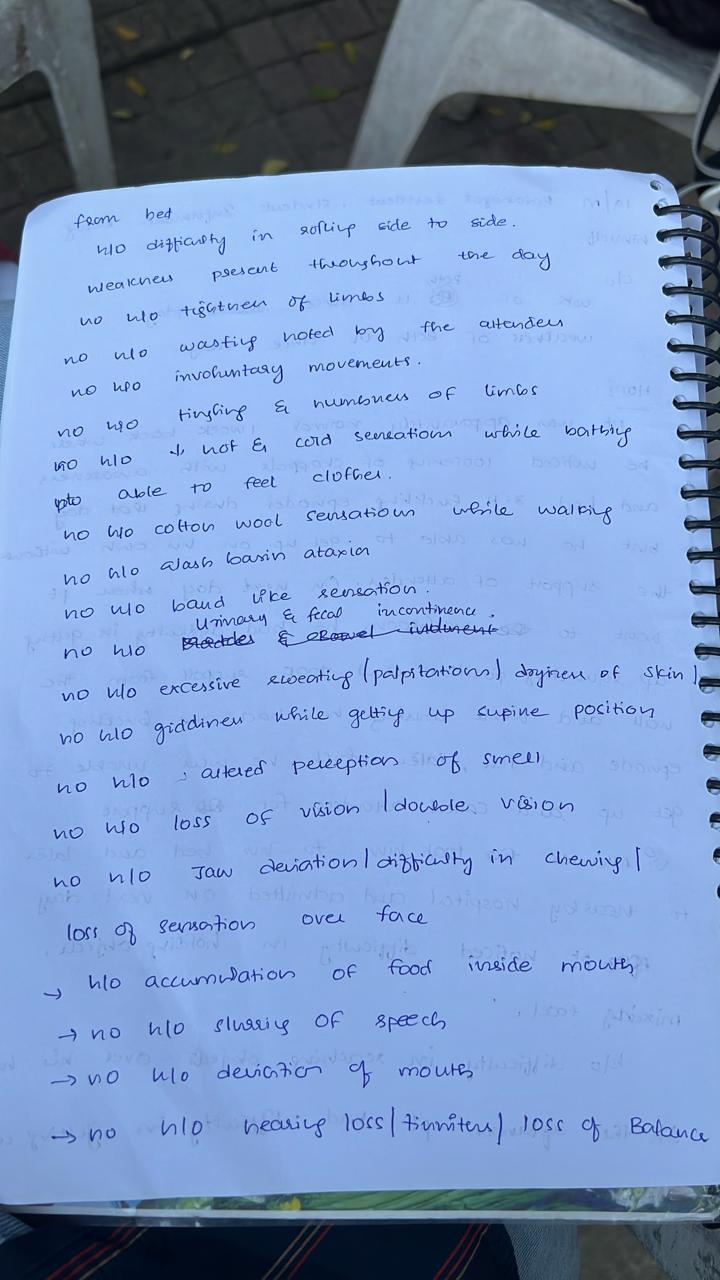 from bed
h/o difficulty in rolling side to side.
weakness present throughout the day
no h/o tightness of limbs
no h/o wasting noted by the attenders
no h/o involuntary movements.
no h/o tingling & numbness of limbs
no h/o ↓ hot & cold sensation while bathing
able to feel clothes.
no h/o cotton wool sensation while walking
no h/o wash basin ataxia
no h/o band like sensation.
urinary & fecal incontinence.
no h/o
no h/o excessive sweating / palpitations / dryness of skin /
no h/o giddiness while getting up supine position
no h/o altered perception of smell
no h/o loss of vision / double vision
no h/o Jaw deviation / difficulty in chewing /
loss of sensation over face
→ h/o accumulation of food inside mouth
→ no h/o slurring of speech
→ no h/o deviation of mouth
→ no h/o hearing loss / tinnitus / loss of Balance